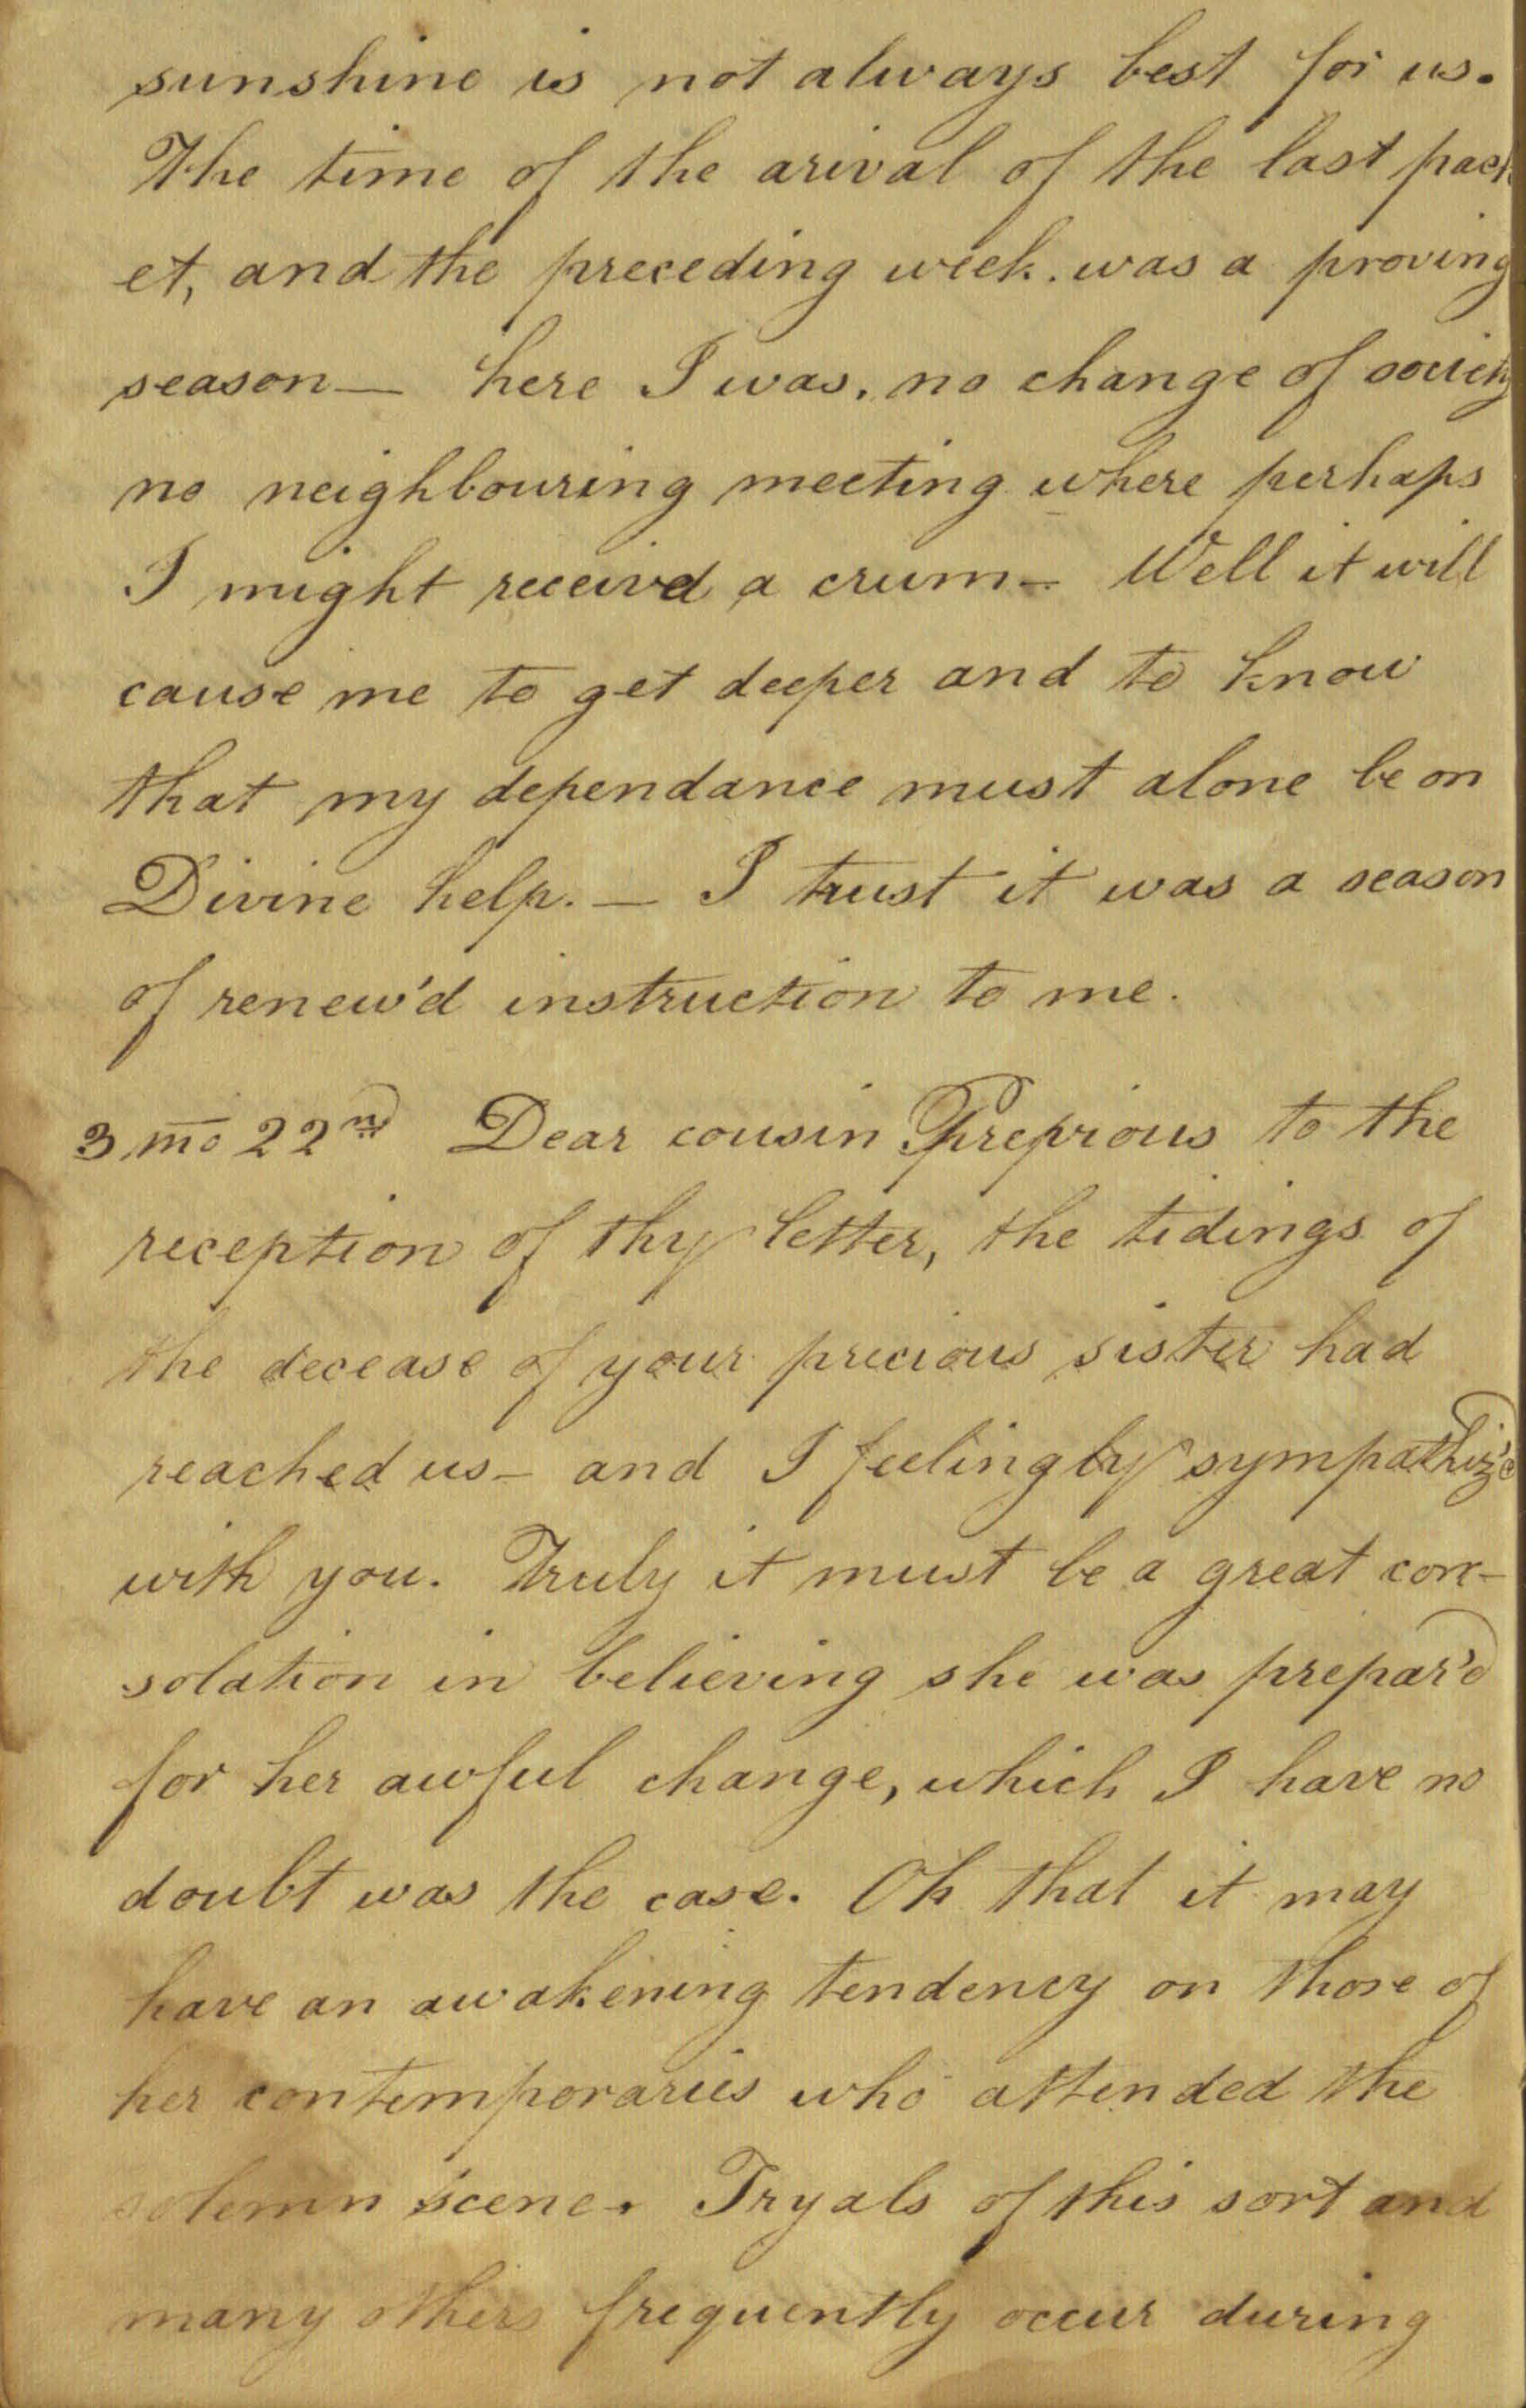 sunshine is not always best for us.
The time of the arival of the last pack
et, and the preceding week. was a proving
season — here I was, no change of society
no neighbouring meeting where perhaps
I might receivd a crum — Well it will
cause me to get deeper and to know
that my dependance must alone be on
Divine help. — I trust it was a season
of renew'd instruction to me.
3 mo 22nd Dear cousin Prepvious to the
reception of thy letter, the tidings of
the decease of your precious sister had
reached us — and I feelingly sympathiz'd
with you. Truly it must be a great con-
solation in believing she was prepar'd
for her awful change, which I have no
doubt was the case. Oh that it may
have an awakening tendency on those of
her contemporaries who attended the
solemn scene. Tryals of this sort and
many others frequently occur during